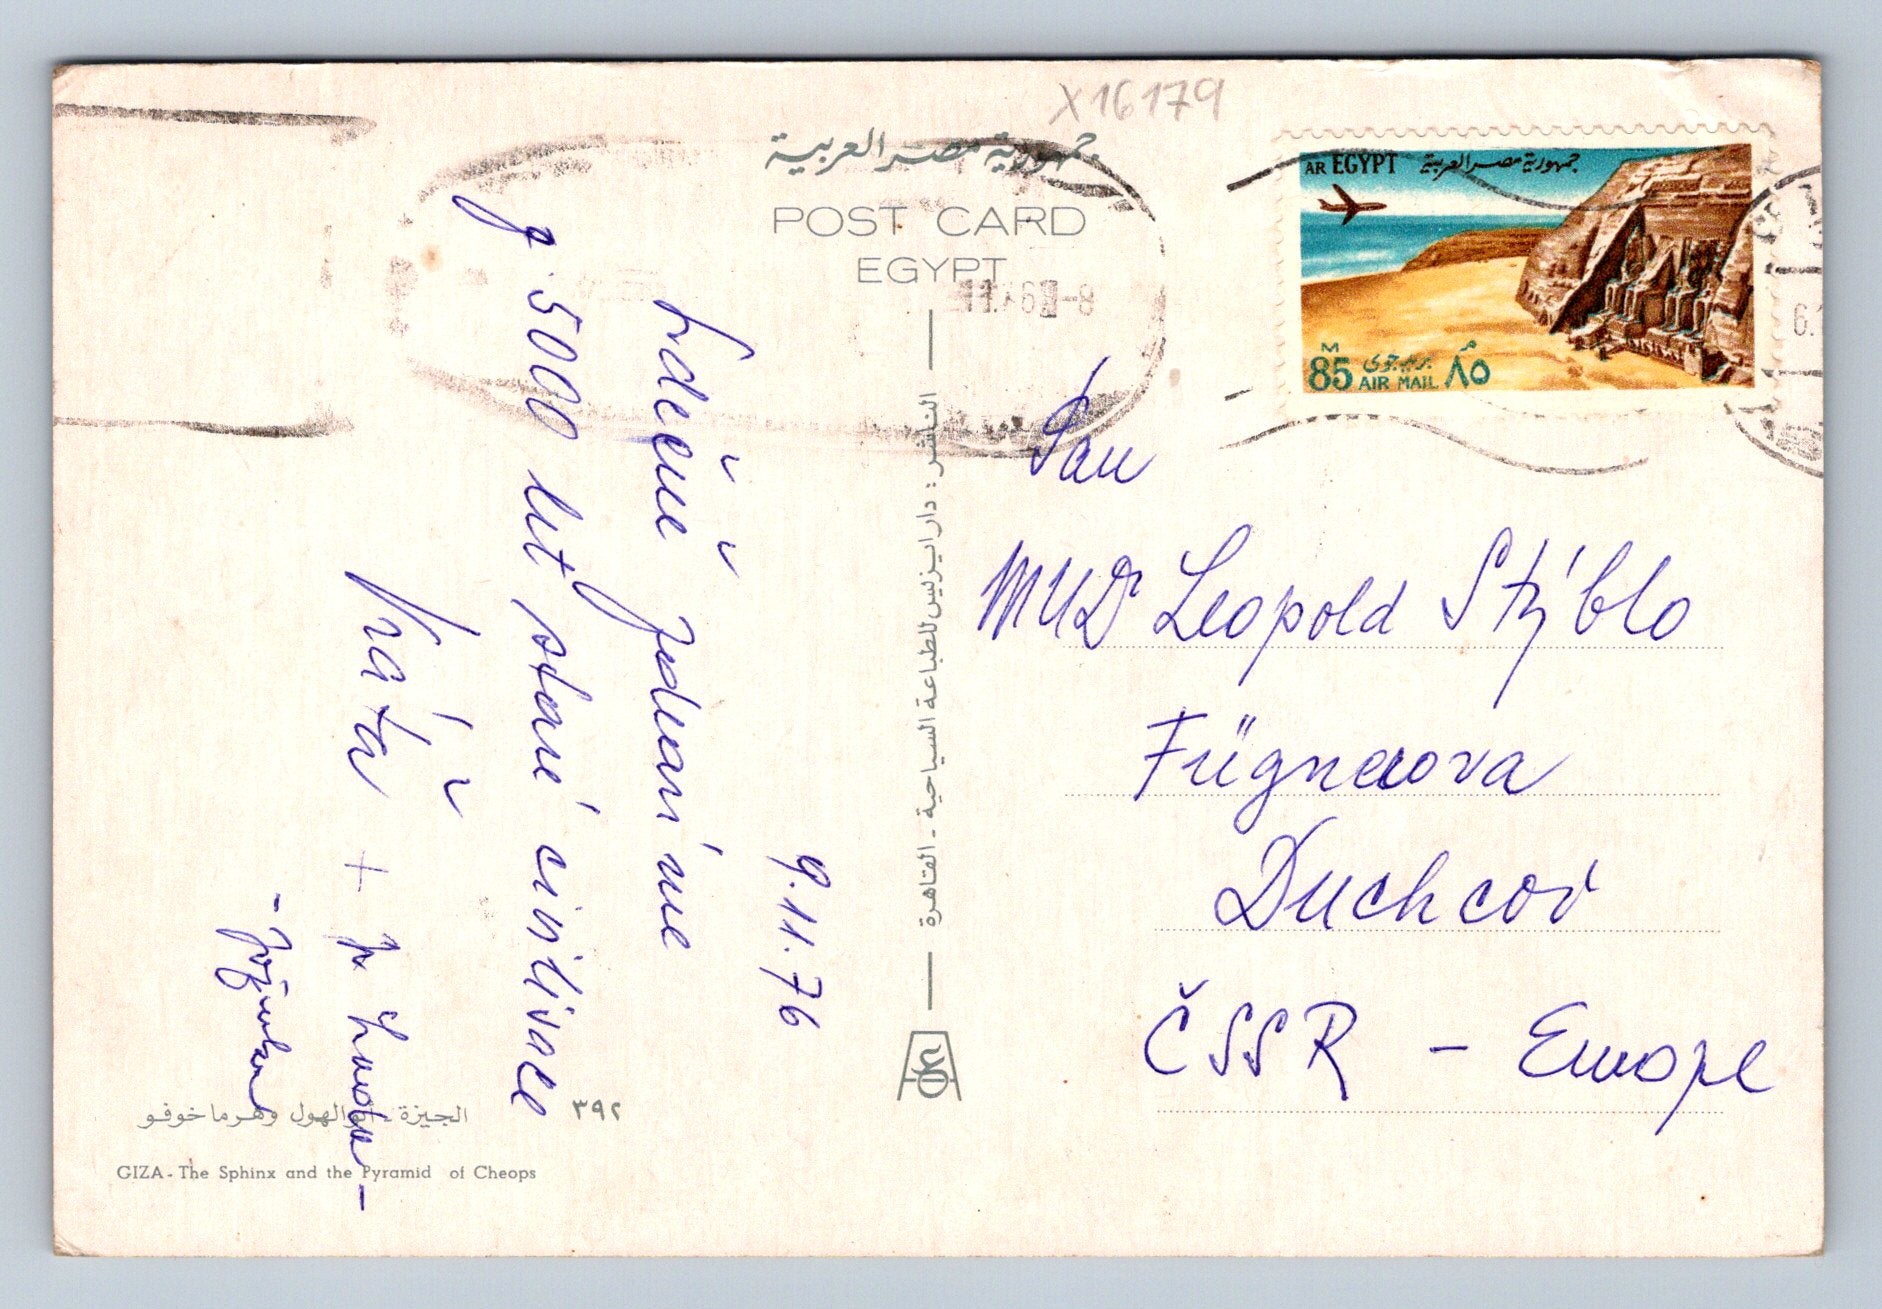 X16179
جمهورية مصر العربية
POST CARD
EGYPT
AR EGYPT جمهورية مصر العربية
M
85 بريد جوى ٨٥
AIR MAIL
9.11.76
Srdečné
z 5000 let staré civilisace
Pan
MUDr Leopold Stýblo
Fügnerova
Duchcov
ČSSR - Europe
الناشر : دار ايزيس للطباعة السياحية - القاهرة
الجيزة - ابو الهول وهرما خوفو ٣٩٢
GIZA - The Sphinx and the Pyramid of Cheops